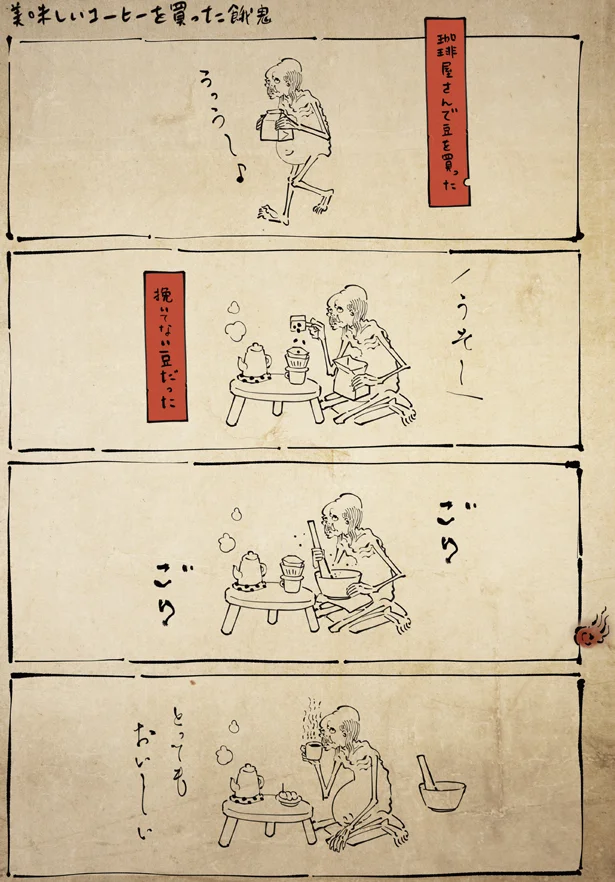 美味しいコーヒーを買った餓鬼
珈琲屋さんで豆を買った
うっう〜♪
うそー
挽いてない豆だった
ごり
ごり
とっても
おいーしい